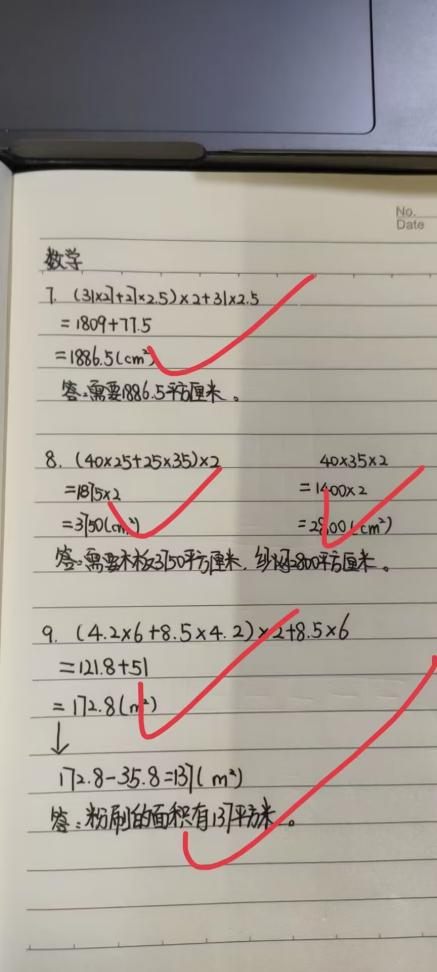 No.
Date
数学
7. (31×27+27×2.5)×2+31×2.5
=1809+77.5
=1886.5(cm²)
答:需要1886.5平方厘米。
8. (40×25+25×35)×2
=1875×2
=3750(cm²)
40×35×2
=1400×2
=2800(cm²)
答:需要木板3750平方厘米,纱网2800平方厘米。
9. (4.2×6+8.5×4.2)×2+8.5×6
=121.8+51
=172.8(m²)
↓
172.8-35.8=137(m²)
答:粉刷的面积有137平方米。